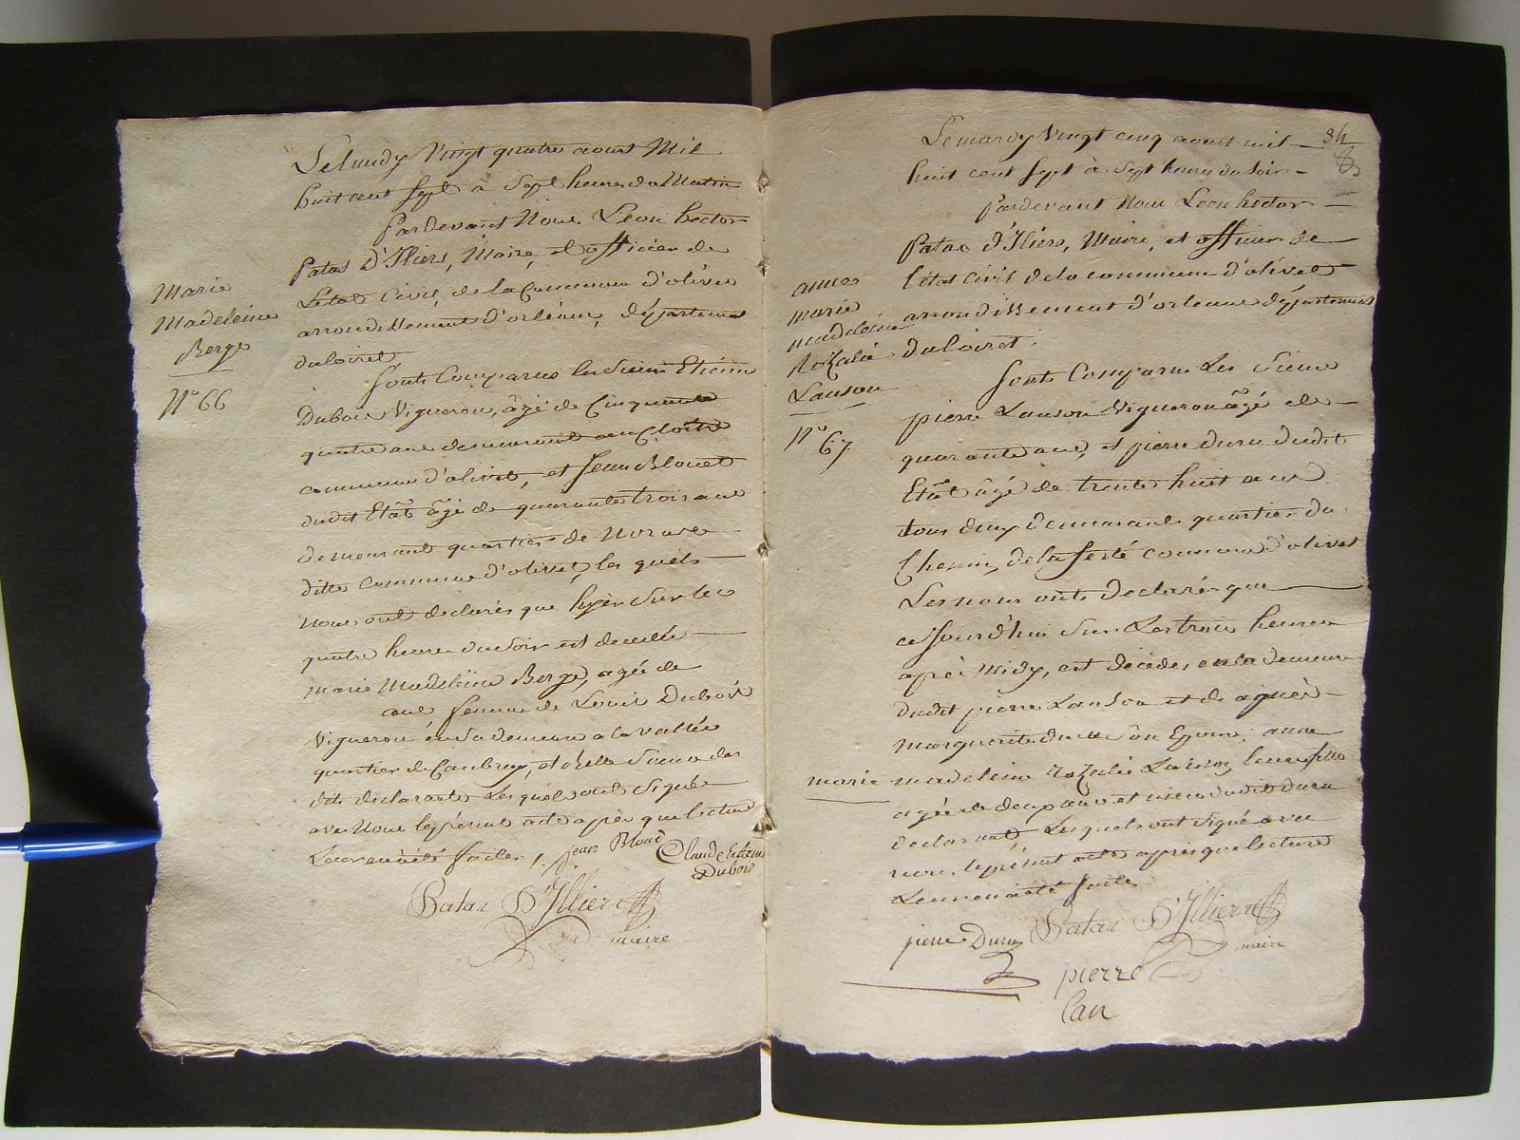 Le lundy Vingt quatre aoust Mil
huit cent sept à Sept heures du Matin
Pardevant Nous Léon hector
Patas d'Illiers, Maire, et officier de
L'etat Civil, de la Commune d'olivet
arrondissement d'orléans, département
du loiret
Marie
Madeleine
Berge
N° 66
Sont Comparus les Sieurs Etienne
Dubois Vigneron, âgé de Cinquante
quatre ans demeurant au Cloître
commune d'olivet, et Jean Blouet
dudit Etât âgé de quarante trois ans
demeurant quartier de
ditte commune d'olivet, les quels
nous ont déclarés que hyer sur les
quatre heures du soir est décedée
Marie Madeleine Berge, agée de
ans femme de Louis Dubois
Vigneron en sa demeure a la vallée
quartier de Caubray, et
dits déclarants Lesquels ont Signé
avec Nous le présent acte après que lecture
Leur en a été faite /. jean Bloué
Claude Etienne
Dubois
Patas D'Illiers
maire
Le mardy Vingt cinq aoust mil
84
huit cent sept à Sept heures du Soir
pardevant Nous Leon hector
Patas d'Iliers, Maire, et officier de
l'état Civil de la commune d'olivet
arrondissement d'orleans département
du loiret.
anne
marie
madeleine
Rozalie
Lanson
N° 67
Sont Comparu Les Sieurs
pierre Lanson Vigneron âgé de
quarante ans, et pierre duru dudit
Etât âgé de trente huit ans
tous deux demeurant quartier du
Chemin, de la ferté commune d'olivet
Les nous ont Declarés que
ce Jourd'hui Sur Les trois heures
après Midy, est décédée en la demeure
dudit pierre Lanson et de agnès
marguerite son Epouse, anne
marie madeleine Rozalie Lanson, leur fille
agée de deux ans et niece dudit duru
declarant, Lesquels ont signé avec
nous le présent acte après que lecture
Leur en a été faite
pierre Duru Patas D'Illiers
maire
pierre
Lan